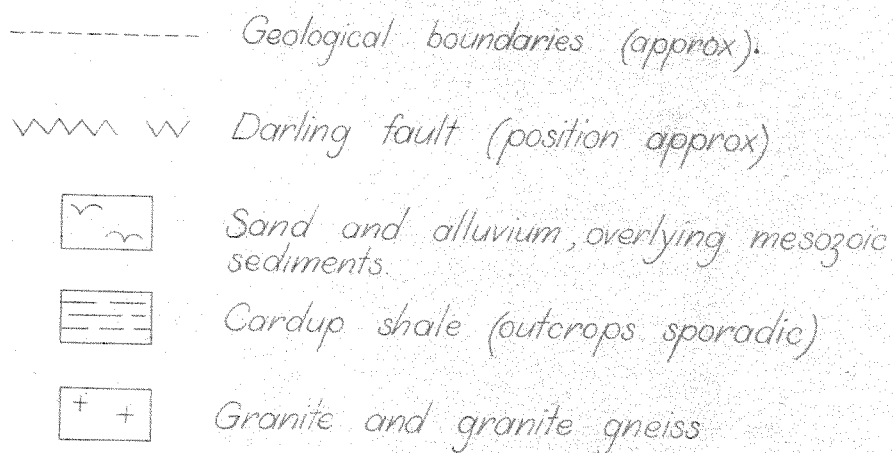 Geological boundaries (approx).
Darling fault (position approx)
Sand and alluvium, overlying mesozoic
sediments.
Cardup shale (outcrops sporadic)
Granite and granite gneiss